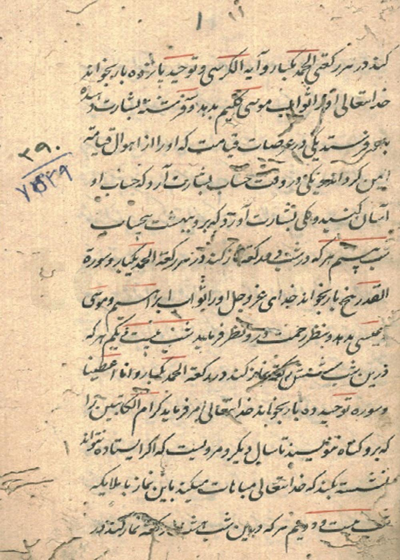 کند در هر رکعتی الحمد یکبار و آیه الکرسی و توحید پانزده بار بخواند
خدایتعالی او را ثواب موسی کلیم بدهد و فرشته بشارت دهنده
بفرستد یکی در عرصات قیامت که او را از اهوال قیامت
ایمن گرداند و یکی در وقت حساب بشارت آرد که حساب او
آسان کنید و یکی بشارت آورد که برو ببهشت بیحساب
شب بیستم هر که درین شب رکعة نماز کند در هر رکعة الحمد یکبار و سورة
القدر پنج بار بخواند خدای عز و جل او را ثواب ابراهیم و موسی
و عیسی بدهد و نظر رحمت در و نظر فرماید شب بیست و یکم هر که
درین شب شش رکعة نماز کند در رکعة الحمد یکبار و انا اعطینا
و سوره توحید ده بار بخواند خدایتعالی امر فرماید کرام الکاتبین را
که برو گناه ننویسند تا سال دیگر و مرویست که اگر ایستاده نتواند
نشسته بکند که خدایتعالی مباهات میکند باین نماز با ملایکه
شب بیست و دویم هر که درین شب هشت رکعة نماز کند در
۳۹۰
۷۵۳۹